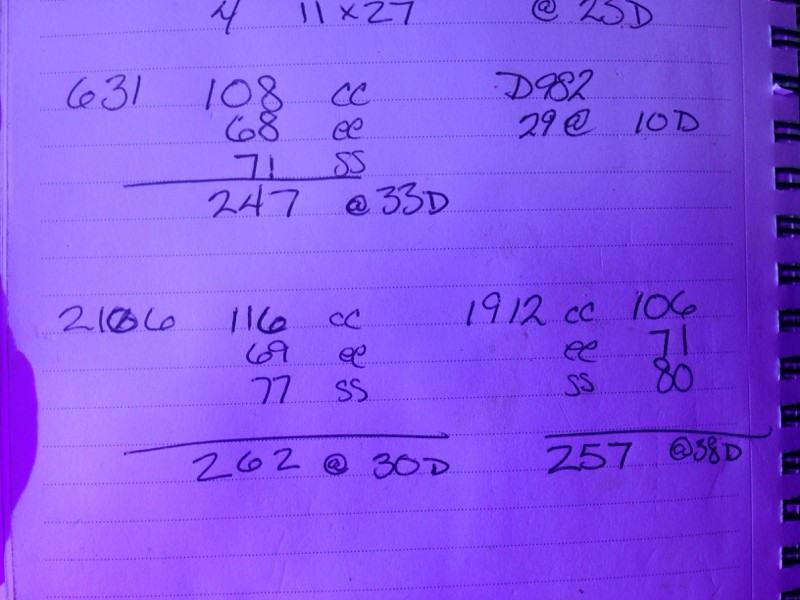 4 11x27 @ 25D
631 108 cc D982
68 ee 29@ 10D
71 ss
247 @33D
2106 116 cc 1912 cc 106
69 ee ee 71
77 ss ss 80
262 @ 30D 257 @38D